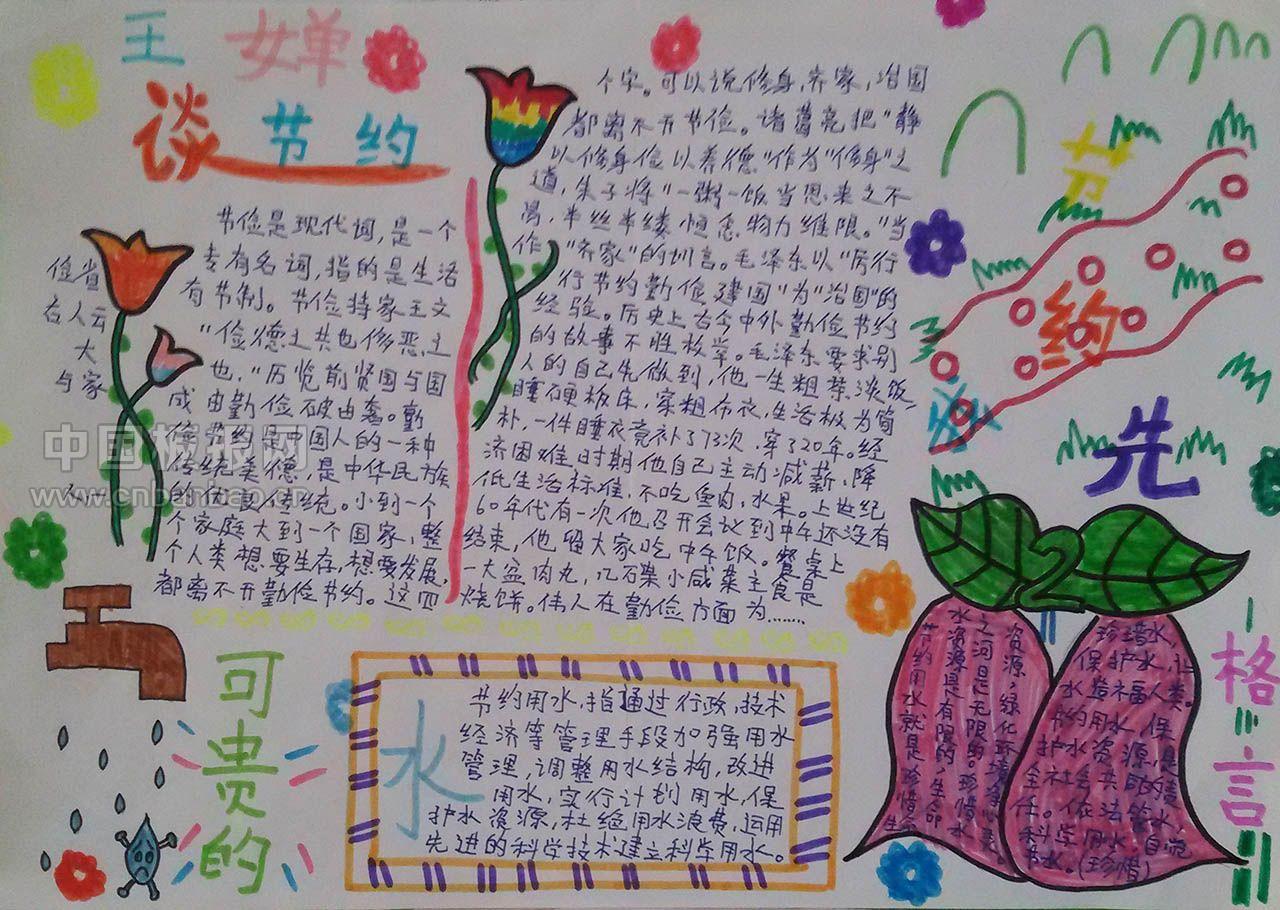 王 婵
谈节约
节俭是现代词,是一个
专有名词,指的是生活
有节制。节俭持家主文
"俭德之共也侈恶之
也,"历览前贤国与国
成由勤俭破由奢。勤
俭节约是中国人的一种
传统美德,是中华民族
的优良传统。小到一个
个家庭大到一个国家,整
个人类想要生存,想要发展,
都离不开勤俭节约。这四
俭省
古人云
大
与家
个字。可以说修身,齐家,治国
都离不开节俭。诸葛亮把"静
以修身俭以养德"作为"修身"之
道,朱子将"一粥一饭当思来之不
易,半丝半缕恒念物力维限。"当
作"齐家"的训言。毛泽东以"厉行
行节约勤俭建国"为"治国"的
经验。历史上古今中外勤俭节约
的故事不胜枚举。毛泽东要求别
人的自己先做到,他一生粗茶淡饭,
睡硬板床,穿粗布衣,生活极为简
朴,一件睡衣竟补了73次,穿了20年。经
济困难时期他自己主动减薪、降
低生活标准,不吃鱼肉,水果。上世纪
60年代有一次他召开会议到中午还没有
结束,他留大家吃中午饭。餐桌上
一大盆肉丸,几石菜小咸菜主食是
烧饼。伟人在勤俭方面为……
节
约
先
可贵的
水
节约用水,指通过行政,技术
经济等管理手段加强用水
管理,调整用水结构,改进
用水,实行计划用水,保
护水资源,杜绝用水浪费,运用
先进的科学技术建立科学用水。
资源,绿化环境
之河是无限的。珍惜水
水资源是有限的,生命
节约用水就是珍惜生命
珍惜水,
保护水,让
水造福人类。
节约用水,保
护水资源,是
全社会共同的责
任。依法管水,
科学用水,自觉
节水。(珍惜)
格言
中国板报网
www.cnbanbao.cn